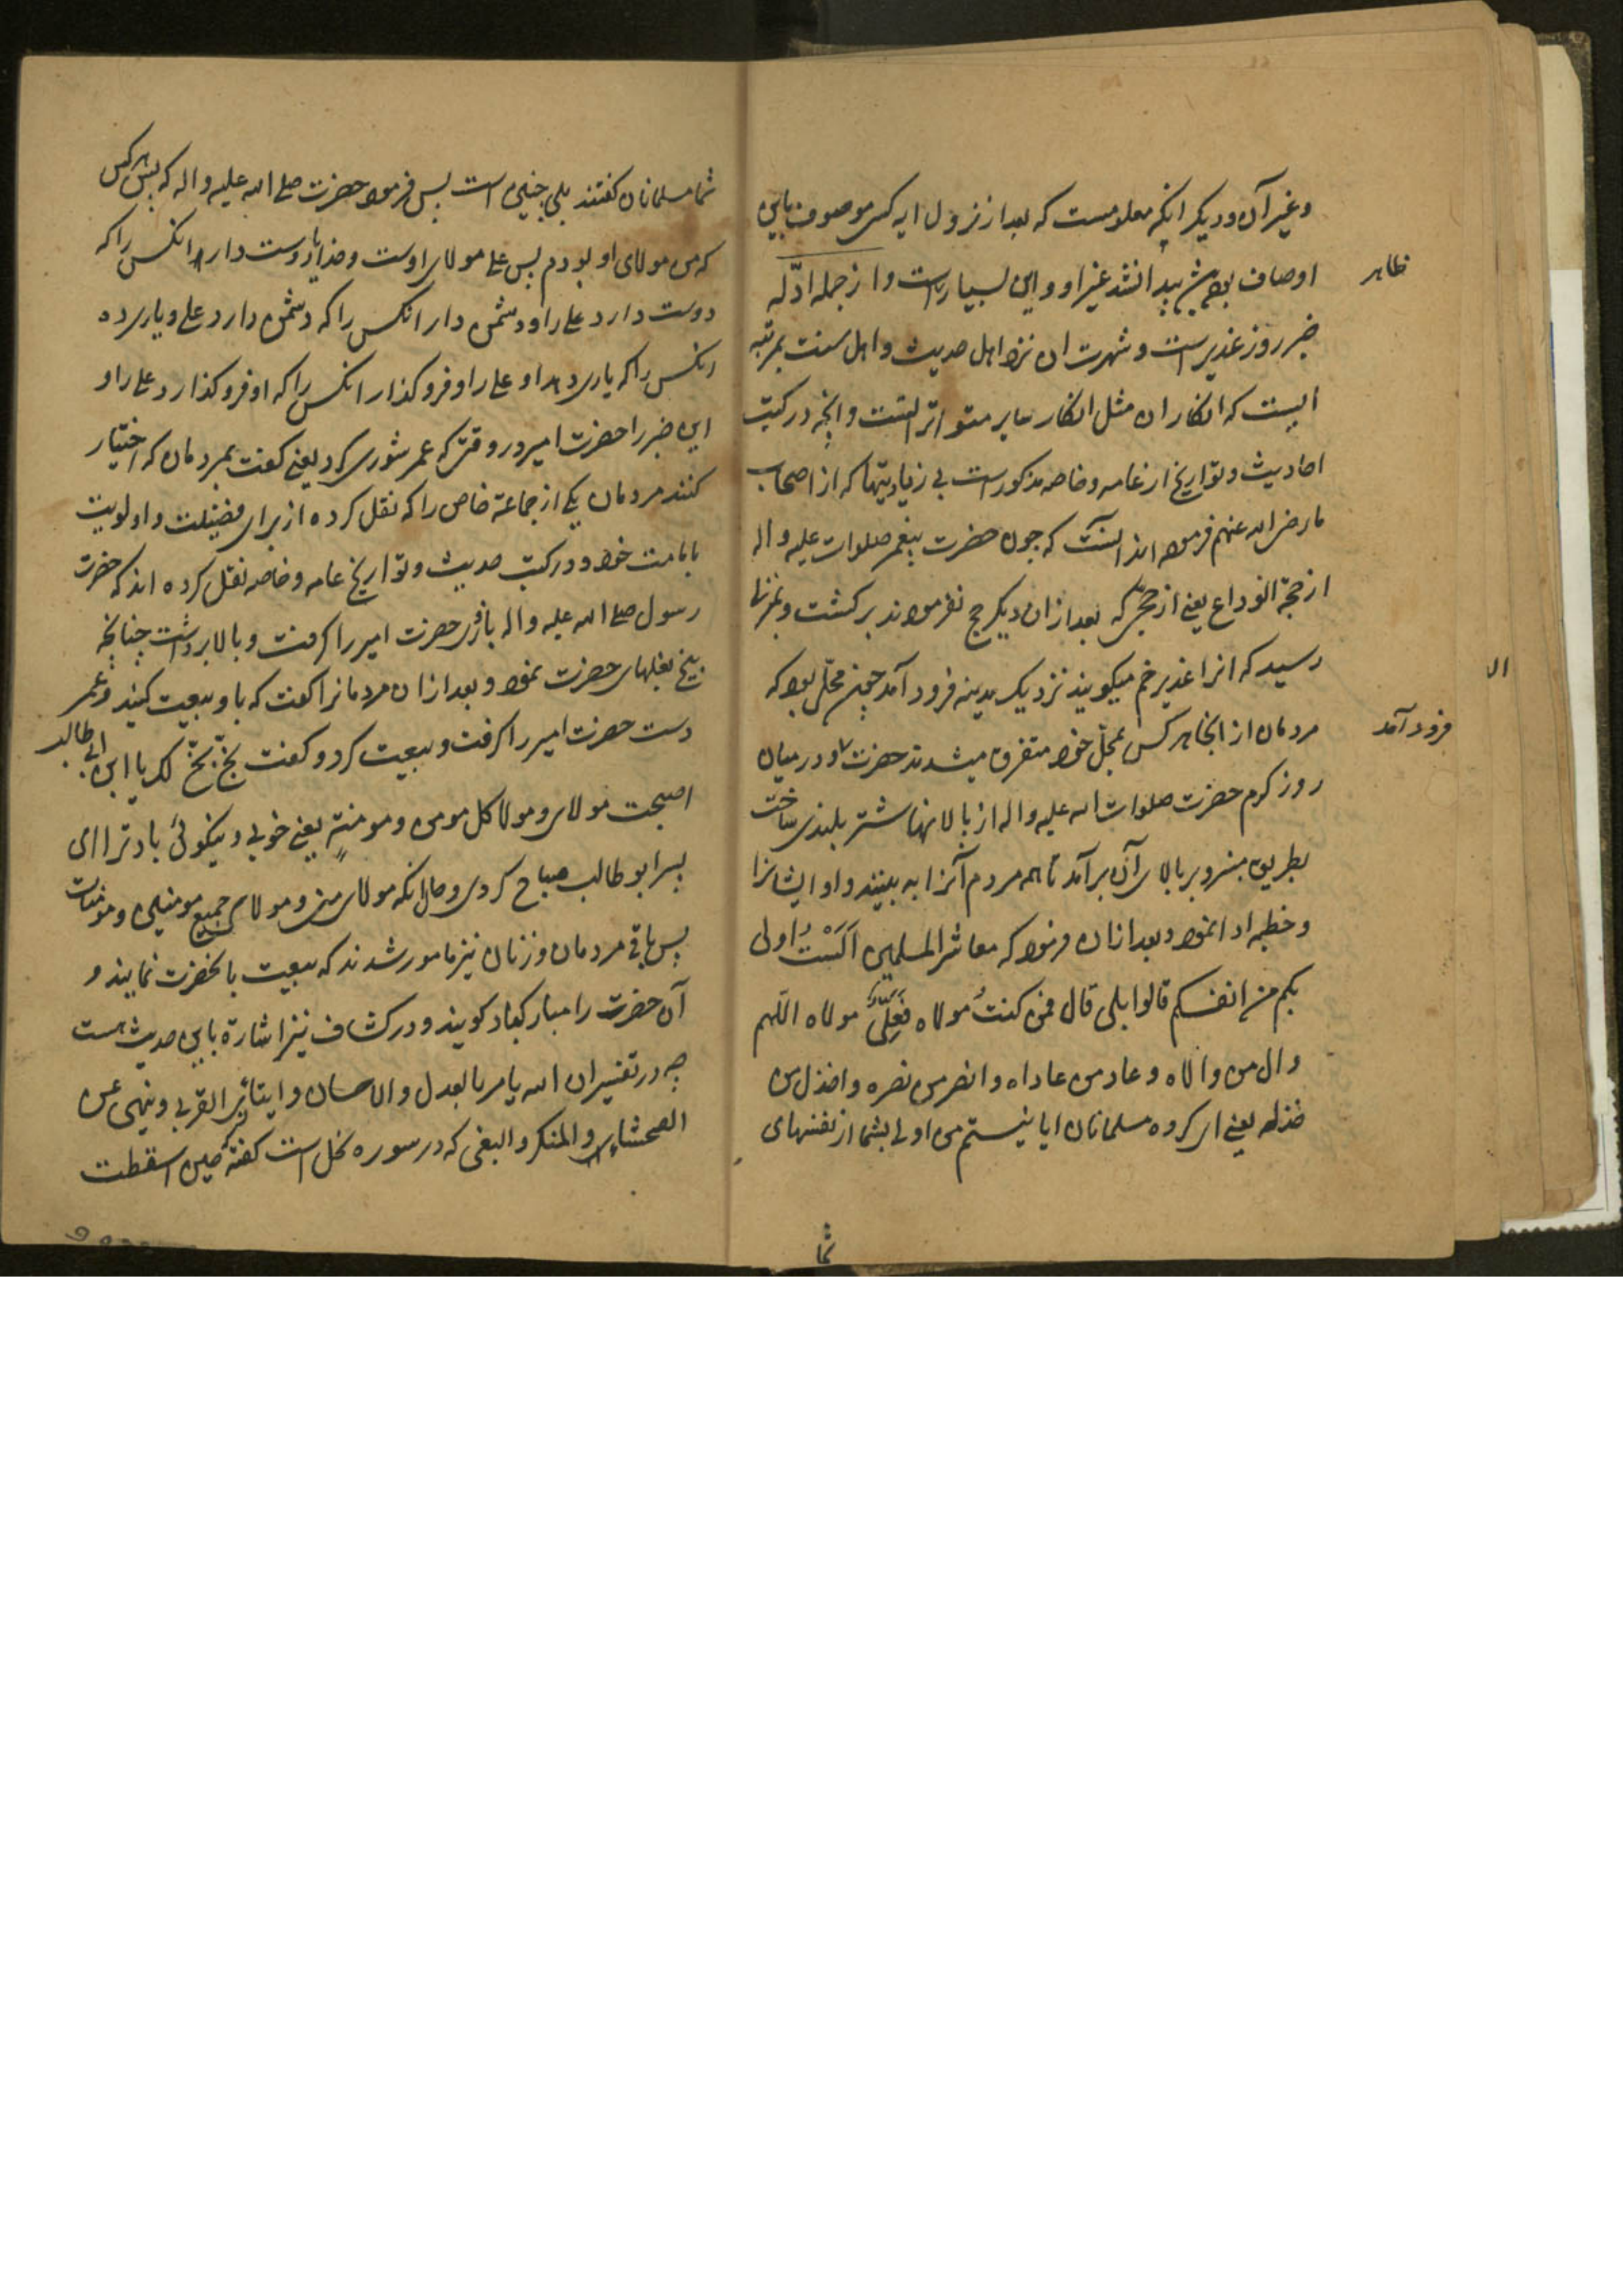 وغیر آن ودیکر انکه معلومست که بعد از نزول ایه کسی موصوف باین
ظاهر
اوصاف بوده پیدا نشد غیر او واین بسیار است واز جمله ادّله
خبر روز غدیر است وشهرت ان نزد اهل حدیث واهل سنت بمرتبه
ایست که انکار ان مثل انکار سایر متواتراتست وانچه در کتب
احادیث وتواریخ از عامه وخاصه مذکور است بی زیادیتها که از اصحاب
ما رضی الله عنهم فرموده اند اینست که چون حضرت پیغمبر صلوات علیه واله
از حجة الوداع یعنی از حجی که بعد از ان دیکر حج نفرمودند برکشت وبمنزلی
الا
رسید که انرا غدیر خم میکویند نزدیک مدینه فرود آمد چون محلّی بود که
فرود آمد
مردمان از انجا هر کس بمحلّ خود متفرق میشدند حضرت او در میان
روز کرم حضرت صلوات الله علیه واله از بالانهاء شتر بلندی ساخت
بطریق منبر وبر بالای آن برآمد تا همه مردم آنرا به بینند واو ایشانرا
وخطبه ادا نمود وبعد ازان فرمود که معاشر المسلمین اَلَسْتُ اولی
بکم من انفسکم قالوا بلی قال فمن کنتُ مولاه فَعَلِیٌّ مولاه اللّهم
وال من والاه وعاد من عاداه وانصر من نصره واخذل من
خذله یعنی ای کروه مسلمانان ایا نیستم من اولی بشما از نفسهای
شما
شما مسلمانان کفتند بلی چنین است پس فرمود حضرت صلی الله علیه واله که پس هر کس
که من مولای او بودم پس علی مولای اوست وخدایا دوست دار انکس را که
دوست دارد علی را ودشمن دار انکس را که دشمن دارد علی ویاری ده
انکس را که یاری دهد او علی را وفروکذار انکس را که او فروکذارد علی را و
این خبر را حضرت امیر در وقتی که عمر شوری کرد یعنی کفت بمردمان که اختیار
کنند مردمان یکی از جماعة خاص را که نقل کرده از برای فضیلت واولویت
بامامت خود ودر کتب حدیث وتواریخ عامه وخاصه نقل کرده اند که حضرت
رسول صلی الله علیه واله بازوی حضرت امیر را کرفت وبالا برداشت چنانچه
بیخ بغلهای حضرت نمود وبعد ازان مردمانرا کفت که با او بیعت کنید وعمر
دست حضرت امیر را کرفت وبیعت کرد وکفت بخّ بخّ لک یا ابن ابی طالب
اصبحت مولای ومولا کل مومن ومومنةٍ یعنی خوبی ونیکوئی باد ترا ای
پسر ابو طالب صباح کردی وحال انکه مولای منی ومولای جمیع مومنین ومومنات
پس باقی مردمان وزنان نیز مامور شدند که بیعت بانحضرت نمایند و
آن حضرت را مبارکباد کویند ودر کشاف نیز اشارة باین حدیث هست
چه در تفسیر ان الله یامر بالعدل والاحسان وایتاء ذی القربی وینهی عن
الفحشاء والمنکر والبغی که در سوره نحل است کفته که حین اسقطت